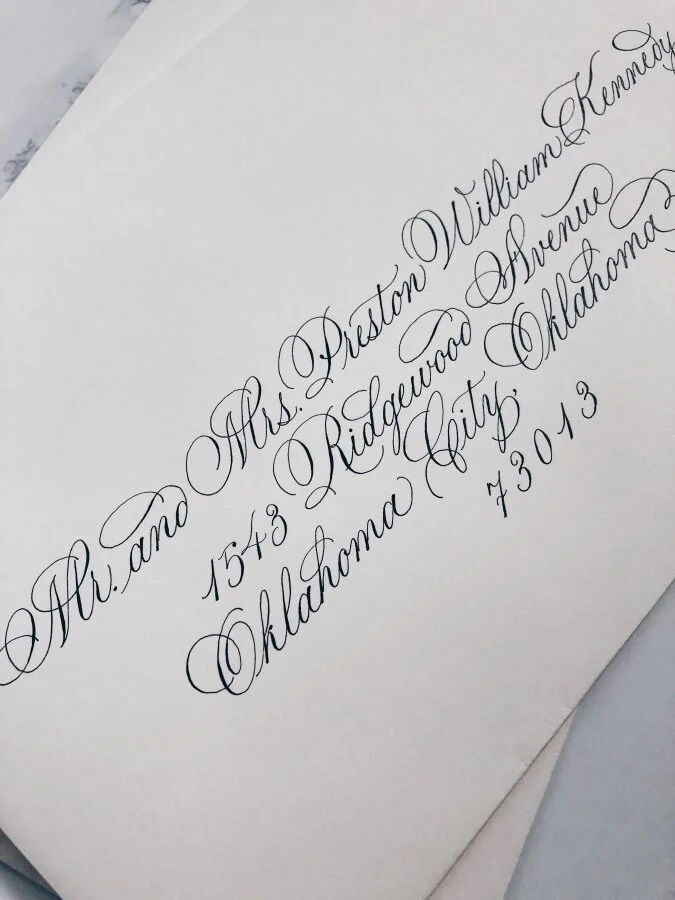 Mr. and Mrs. Preston William Kennedy
1543 Ridgewood Avenue
Oklahoma City, Oklahoma
73013